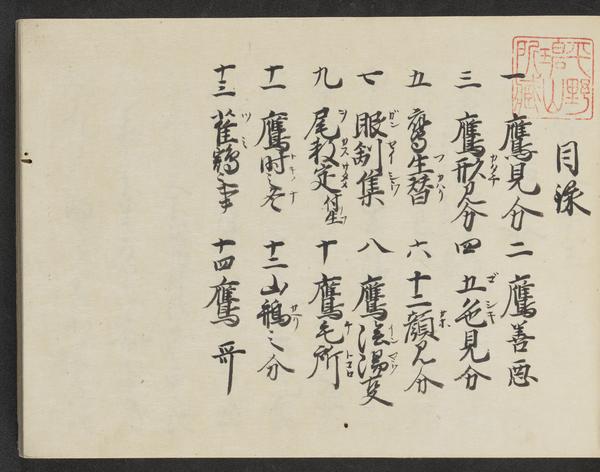 目録
一 鷹見分 二 鷹善悪
三 鷹形見分 四 五色見分
五 鷹生替 六 十二顔見分
七 眼割集 八 鷹陰陽
九 尾数定 付生 十 鷹毛所
十一 鷹時之名 十二 山鴘之分
十三 雀鷂之事 十四 鷹哥
平野
山
所藏